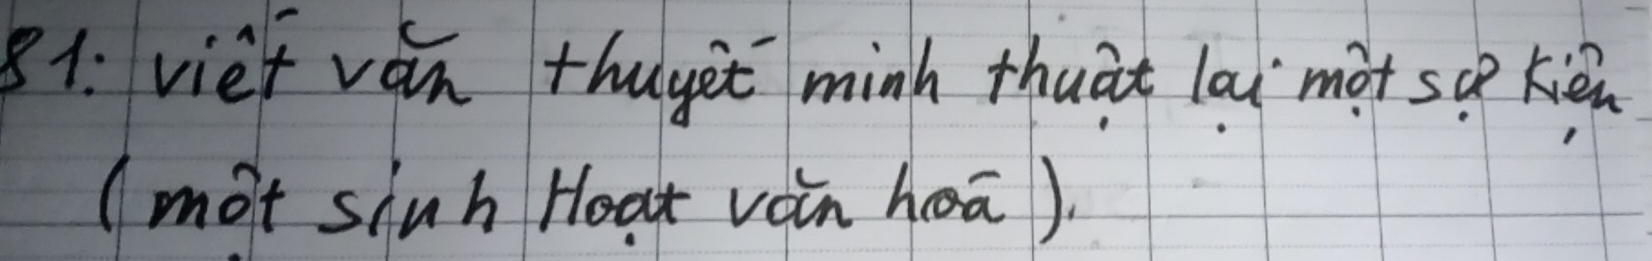 81: viết văn thuyết minh thuật lại một sự kiện
(một sinh Hoạt văn hoá).